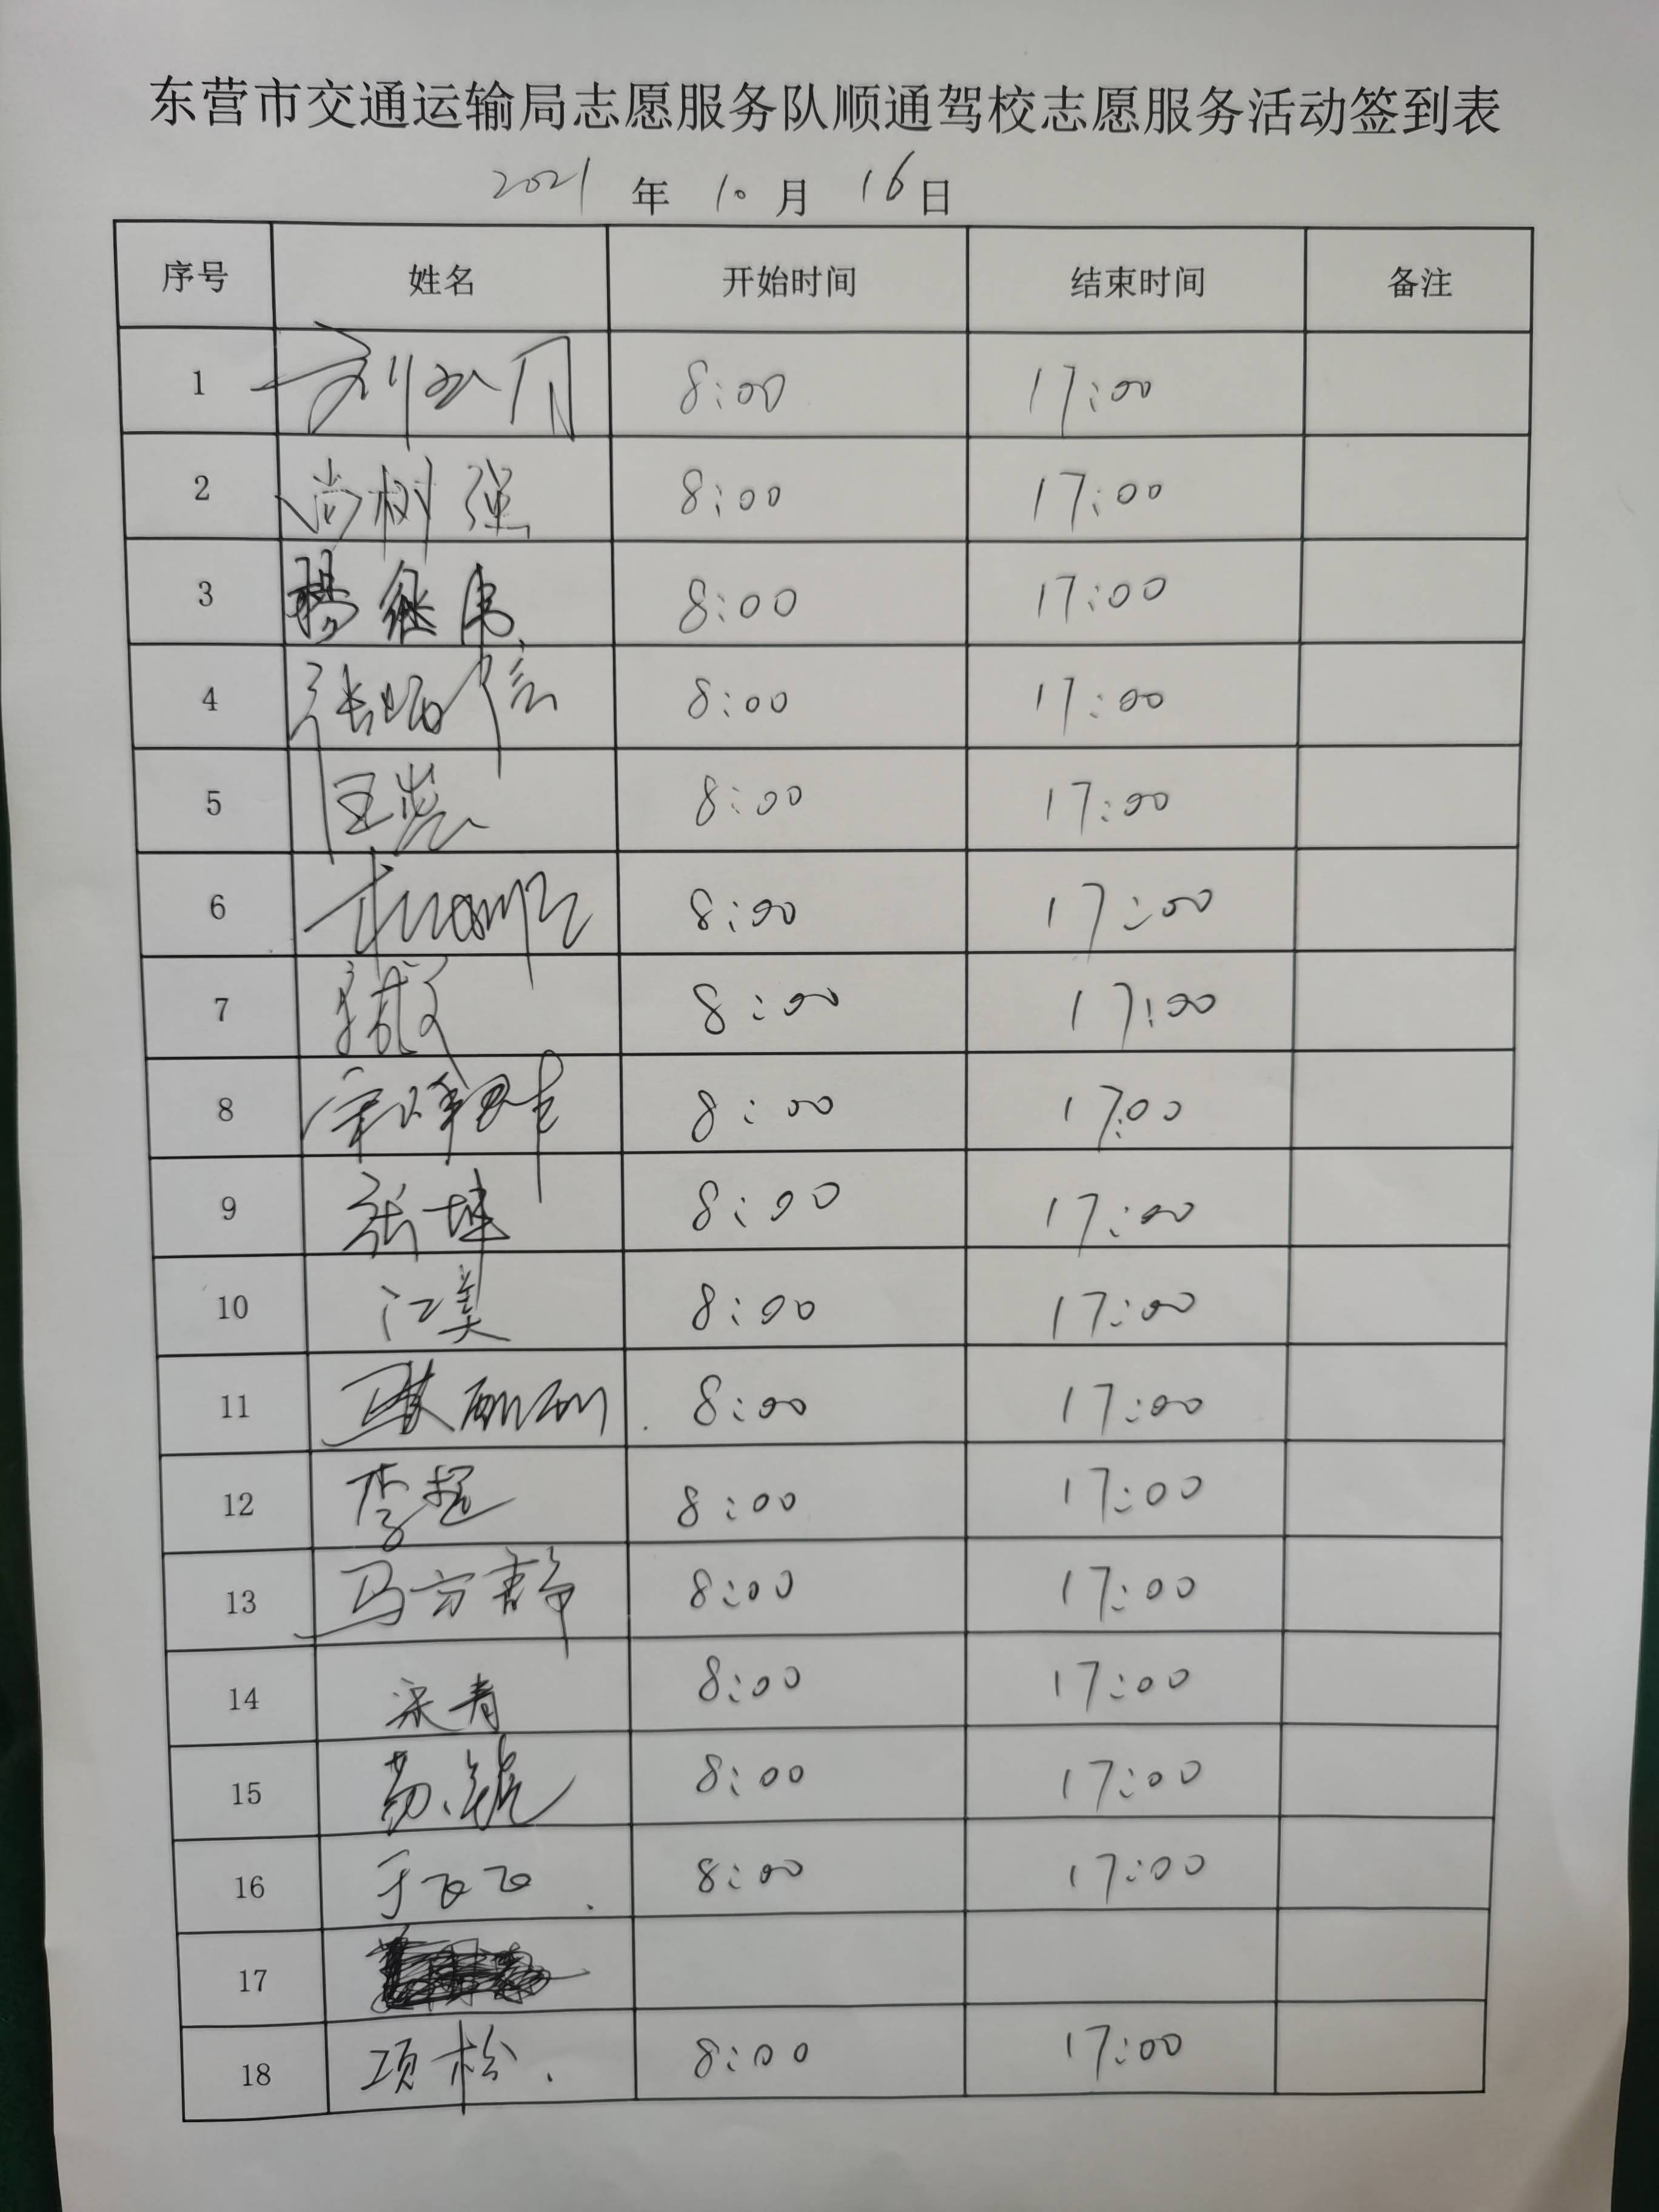 东营市交通运输局志愿服务队顺通驾校志愿服务活动签到表
2021 年 10 月 16 日
序号 姓名 开始时间 结束时间 备注
1 8:00 17:00
2 尚树强 8:00 17:00
3 杨继伟 8:00 17:00
4 8:00 17:00
5 8:00 17:00
6 8:00 17:00
7 8:00 17:00
8 8:00 17:00
9 张坤 8:00 17:00
10 江美 8:00 17:00
11 8:00 17:00
12 李超 8:00 17:00
13 马方静 8:00 17:00
14 宋青 8:00 17:00
15 8:00 17:00
16 于飞飞 8:00 17:00
17
18 项松 8:00 17:00